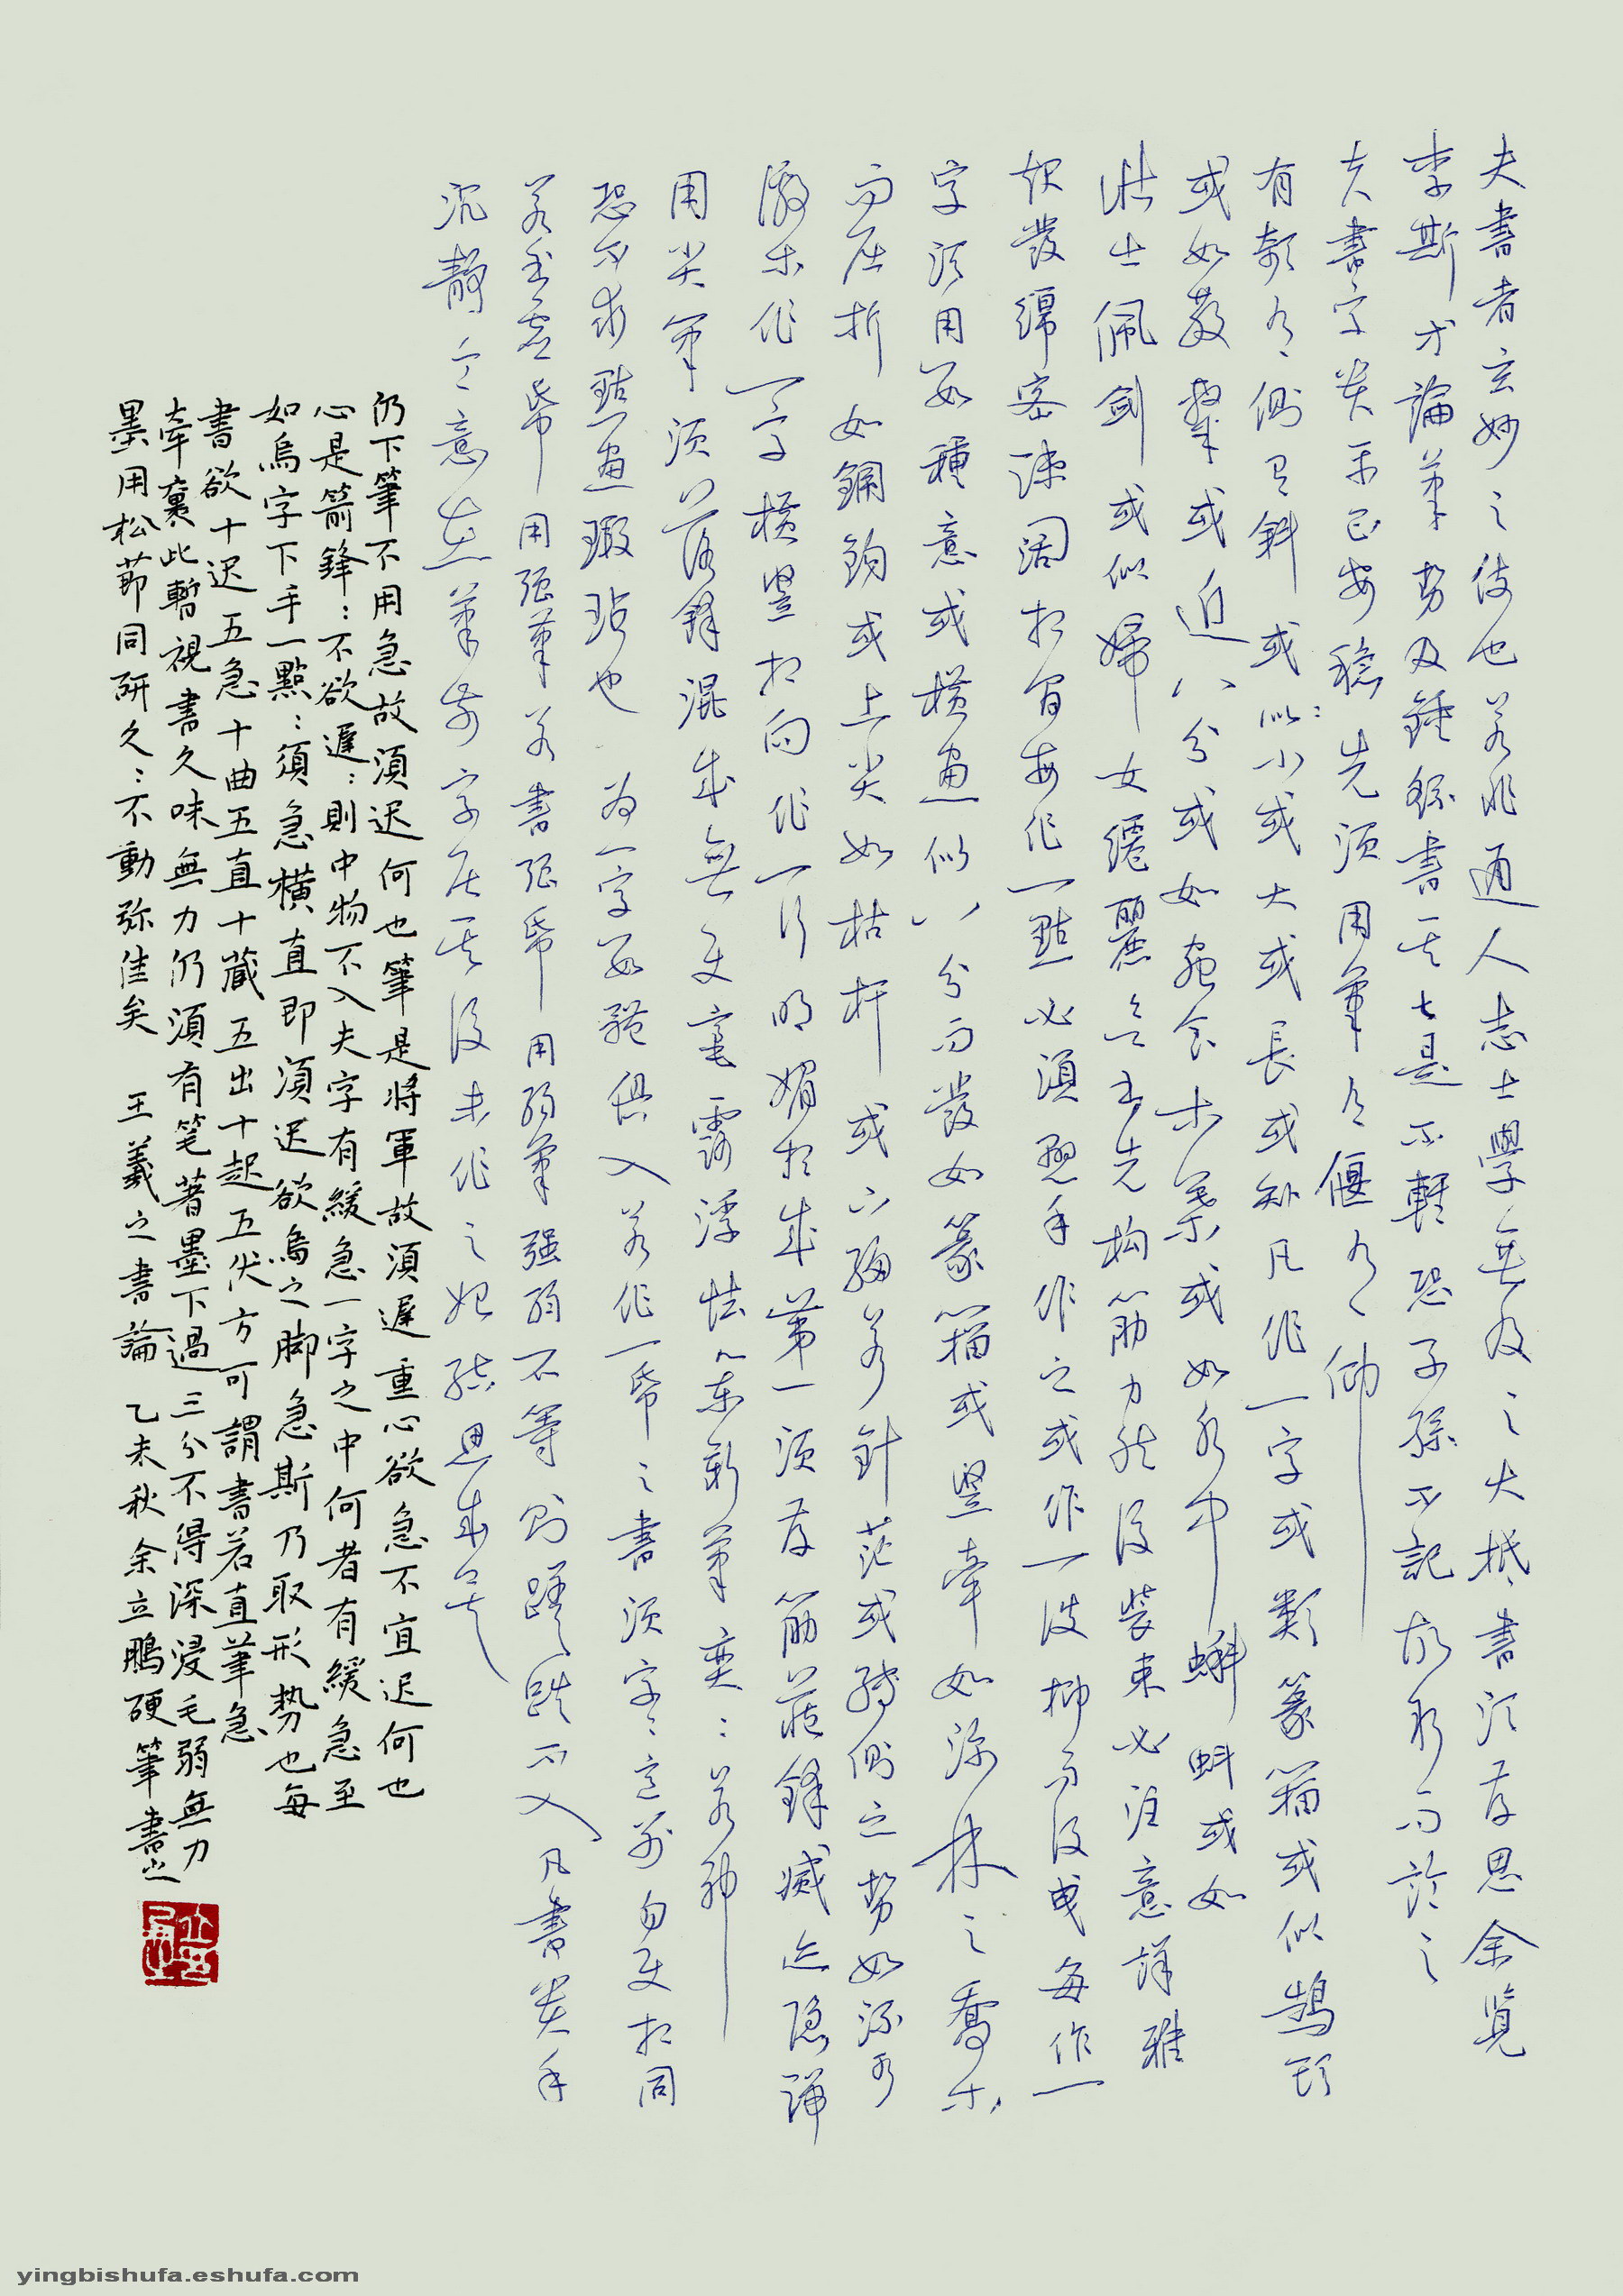 夫書者玄妙之伎也若非通人志士學無及之大抵書須存思余覽
李斯等論筆勢及鍾繇書骨甚是不輕恐子孫不記故敘而論之
夫書字貴平正安穩先須用筆有偃有仰
有欹有側有斜或小或大或長或短凡作一字或類篆籀或似鵠頭
或如散隸或近八分或如蟲食木葉或如水中蝌蚪或如
壯士佩劍或似婦女纖麗欲書先構筋力然後裝束必注意詳雅
起發綿密疎闊相間每作一點必須懸手作之或作一波抑而後曳每作一
字須用數種意或橫畫似八分而發如篆籀或豎牽如深林之喬木
而屈折如鋼鉤或上尖如枯杆或下細若針茫或轉側之勢如飛鳥
激來作一字橫豎相向作一行明媚相成第一須存筋藏鋒滅迹隱端
用尖筆須落鋒混成無使毫露浮怯舉新筆爽爽若神
恐不求點畫瑕玷也 為一字數體俱入若作一紙之書須字字意別勿使相同
若書虛紙用強筆若書強紙用弱筆強弱不等則蹉跌不入凡書貴乎
沉靜令意在筆前字居其後未作之始結思成矣
仍下筆不用急故須迟何也筆是將軍故須遲重心欲急不宜迟何也
心是箭鋒:不欲遲:則中物不入夫字有緩急一字之中何者有緩急至
如烏字下手一點:須急橫直即須迟欲烏之脚急斯乃取形势也每
書欲十迟五急十曲五直十藏五出十起五伏方可謂書若直筆急
牽裏此暫視書久味無力仍須有笔著墨下過三分不得深浸毛弱無力
墨用松節同研久:不動弥佳矣 王羲之書論 乙未秋余立鵬硬筆書
yingbishufa.eshufa.com